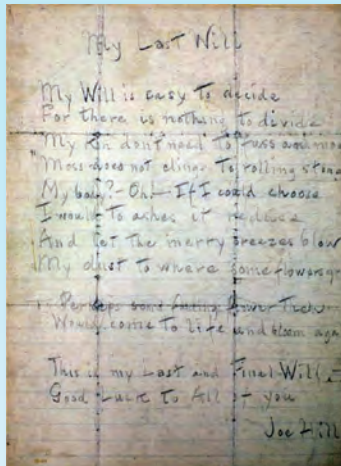 My Last Will
My Will is easy to decide
For there is nothing to divide
My Kin don't need to fuss and moa
"Moss does not cling to rolling stone
My body? - Oh! - If I could choose
I would to ashes it reduce
And let the merry breezes blow
My dust to where some flowers gr
Perhaps some fading flower then
Would come to life and bloom aga
This is my Last and Final Will
Good Luck to All of you
Joe Hill